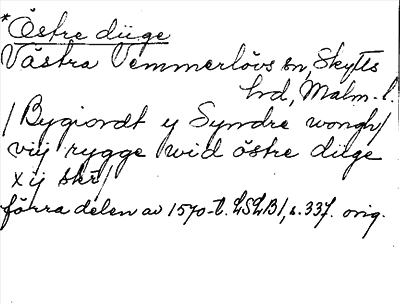 *Östre diige
Västra Vemmerlövs sn, Skytts
hd, Malm. l.
/Bygiordt y Syndre wongh/
viij rygge wid östre diige
xij skr/
förra delen av 1570-t. LSLB1, s. 337. orig.